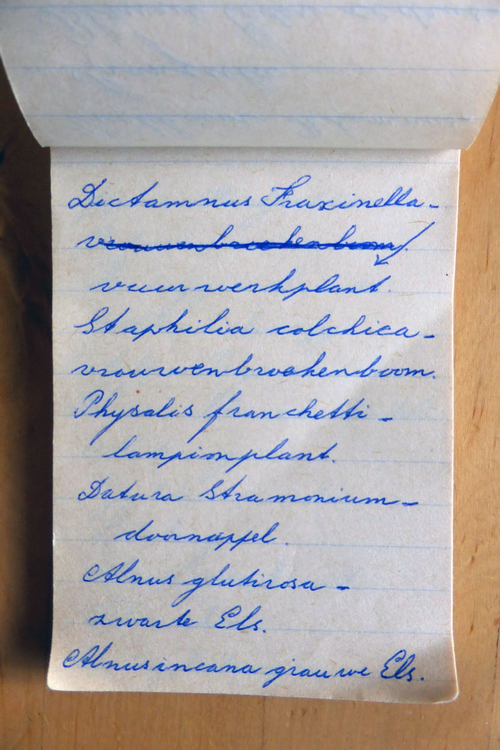 Dictamnus Fraxinella -
vrouwenbroekenboom.
vuurwerkplant.
Staphilia colchica -
vrouwenbroekenboom.
Physalis franchetti -
lampionplant.
Datura Stramonium -
doornappel.
Alnus glutirosa -
zwarte Els.
Alnus incana grauwe Els.